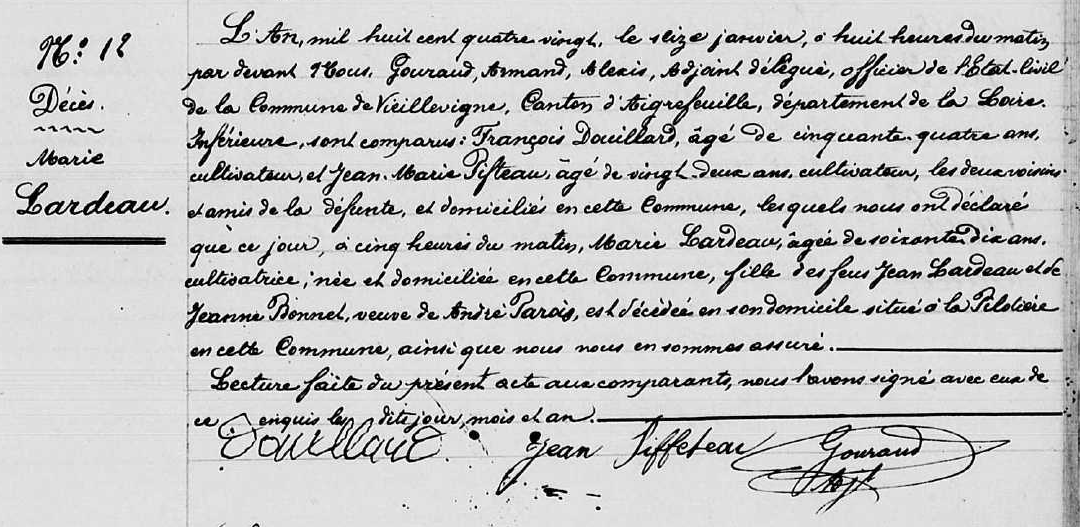 N.° 12
Décès.
Marie
Lardeau.
L'An, mil huit cent quatre vingt, le seize janvier, à huit heures du matin
par devant Nous, Gouraud, Armand, Alexis, Adjoint délégué, officier de l'Etat-Civil
de la Commune de Vieillevigne, Canton d'Aigrefeuille, département de la Loire-
Inférieure, sont comparus: François Douillard, âgé de cinquante-quatre ans,
cultivateur, et Jean-Marie Pifteau, âgé de vingt-deux ans, cultivateur, les deux voisins
et amis de la défunte, et domiciliés en cette Commune, lesquels nous ont déclaré
que ce jour, à cinq heures du matin, Marie Lardeau, âgée de soixante-dix ans,
cultivatrice, née et domiciliée en cette Commune, fille des feus Jean Lardeau et de
Jeanne Bonnet, veuve de André Parois, est décédée en son domicile situé à la Pilotière
en cette Commune, ainsi que nous nous en sommes assuré.
Lecture faite du présent acte aux comparants, nous l'avons signé avec eux de
ce enquis les dits jour, mois et an.
Douillard. Jean Piffeteau Gouraud
Adjt